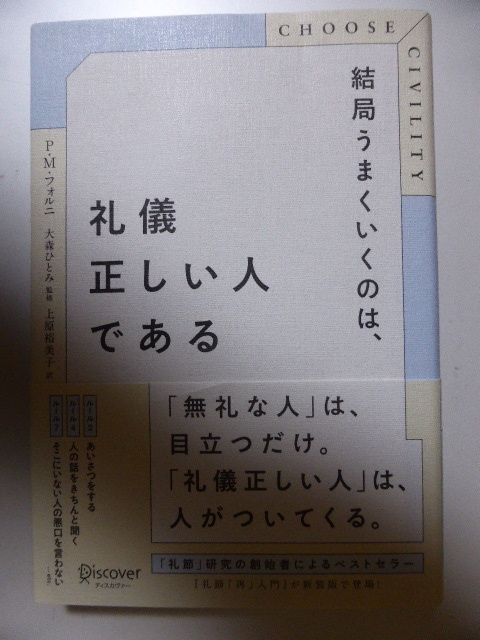 CHOOSE
CIVILITY
結局うまくいくのは、
礼儀
正しい人
である
P・M・フォルニ
大森ひとみ 監修
上原裕美子 訳
「無礼な人」は、
目立つだけ。
「礼儀正しい人」は、
人がついてくる。
ルール2 あいさつをする
ルール4 人の話をきちんと聞く
ルール7 そこにいない人の悪口を言わない
…etc
「礼節」研究の創始者によるベストセラー
『礼節「再」入門』が新装版で登場!
Discover
ディスカヴァー